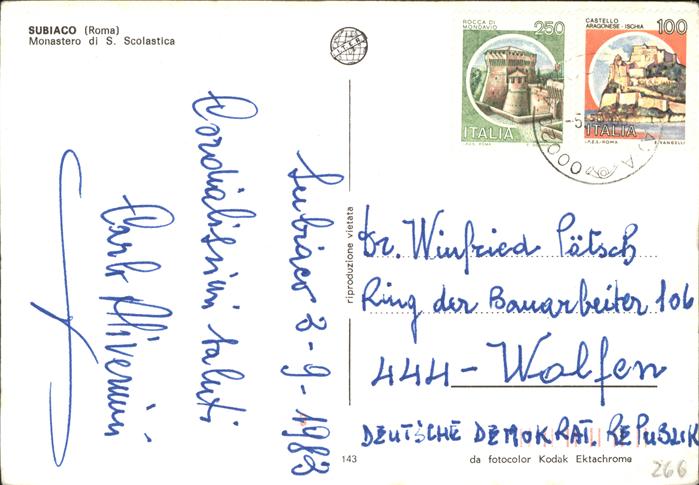 SUBIACO (Roma)
Monastero di S. Scolastica
ROCCA DI
MONDAVIO
250
ITALIA
I.P.S.-ROMA
CASTELLO
ARAGONESE - ISCHIA
100
ITALIA
I.P.S.-ROMA
E. VANGELLI
Subiaco 3-9-1983
Cordialissimi saluti
Carlo
riproduzione vietata
Dr. Winfried Pätsch
Ring der Bauarbeiter 106
444 - Wolfen
DEUTSCHE DEMOKRAT. REPUBLIK
143
da fotocolor Kodak Ektachrome
266